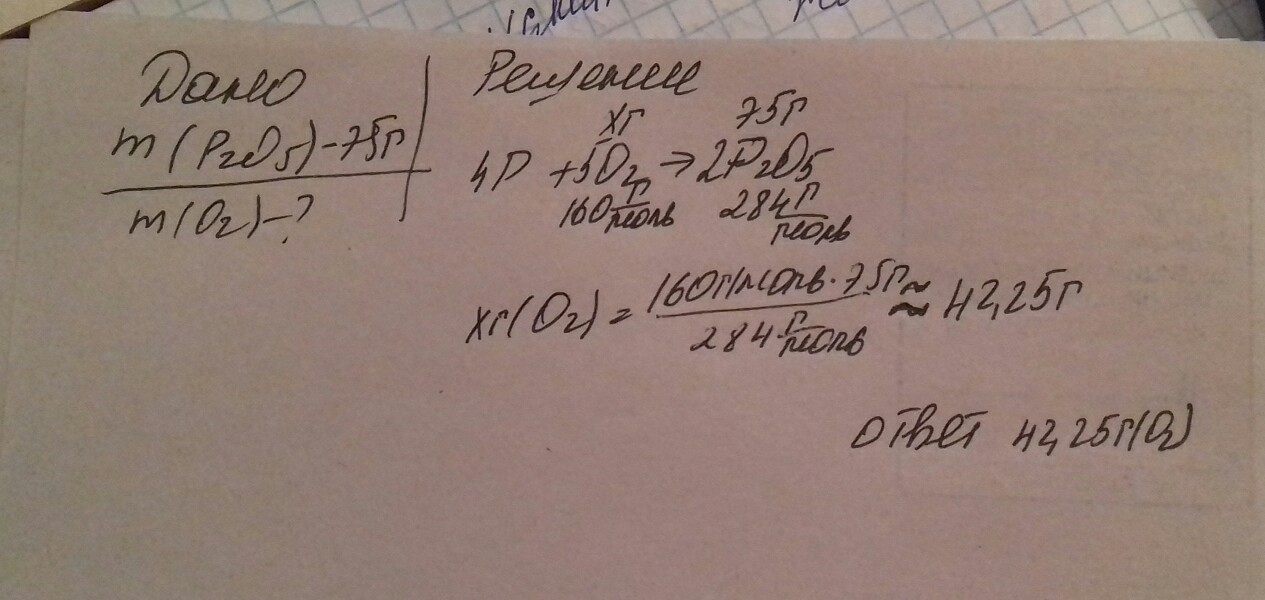 Дано
m(P₂O₅)-75г
m(O₂)-?
Решение
хг 75г
4P +5O₂ → 2P₂O₅
160 г/моль 284 г/моль
хг(O₂) = 160г/моль · 75г / 284 г/моль ≈ 42,25г
ответ 42,25г(O₂)